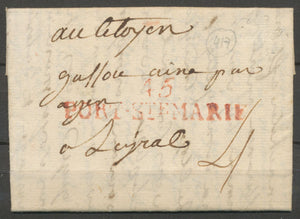 au Citoyen
gassou ainé par
45
PORT-STE-MARIE
agen
a Leyrat